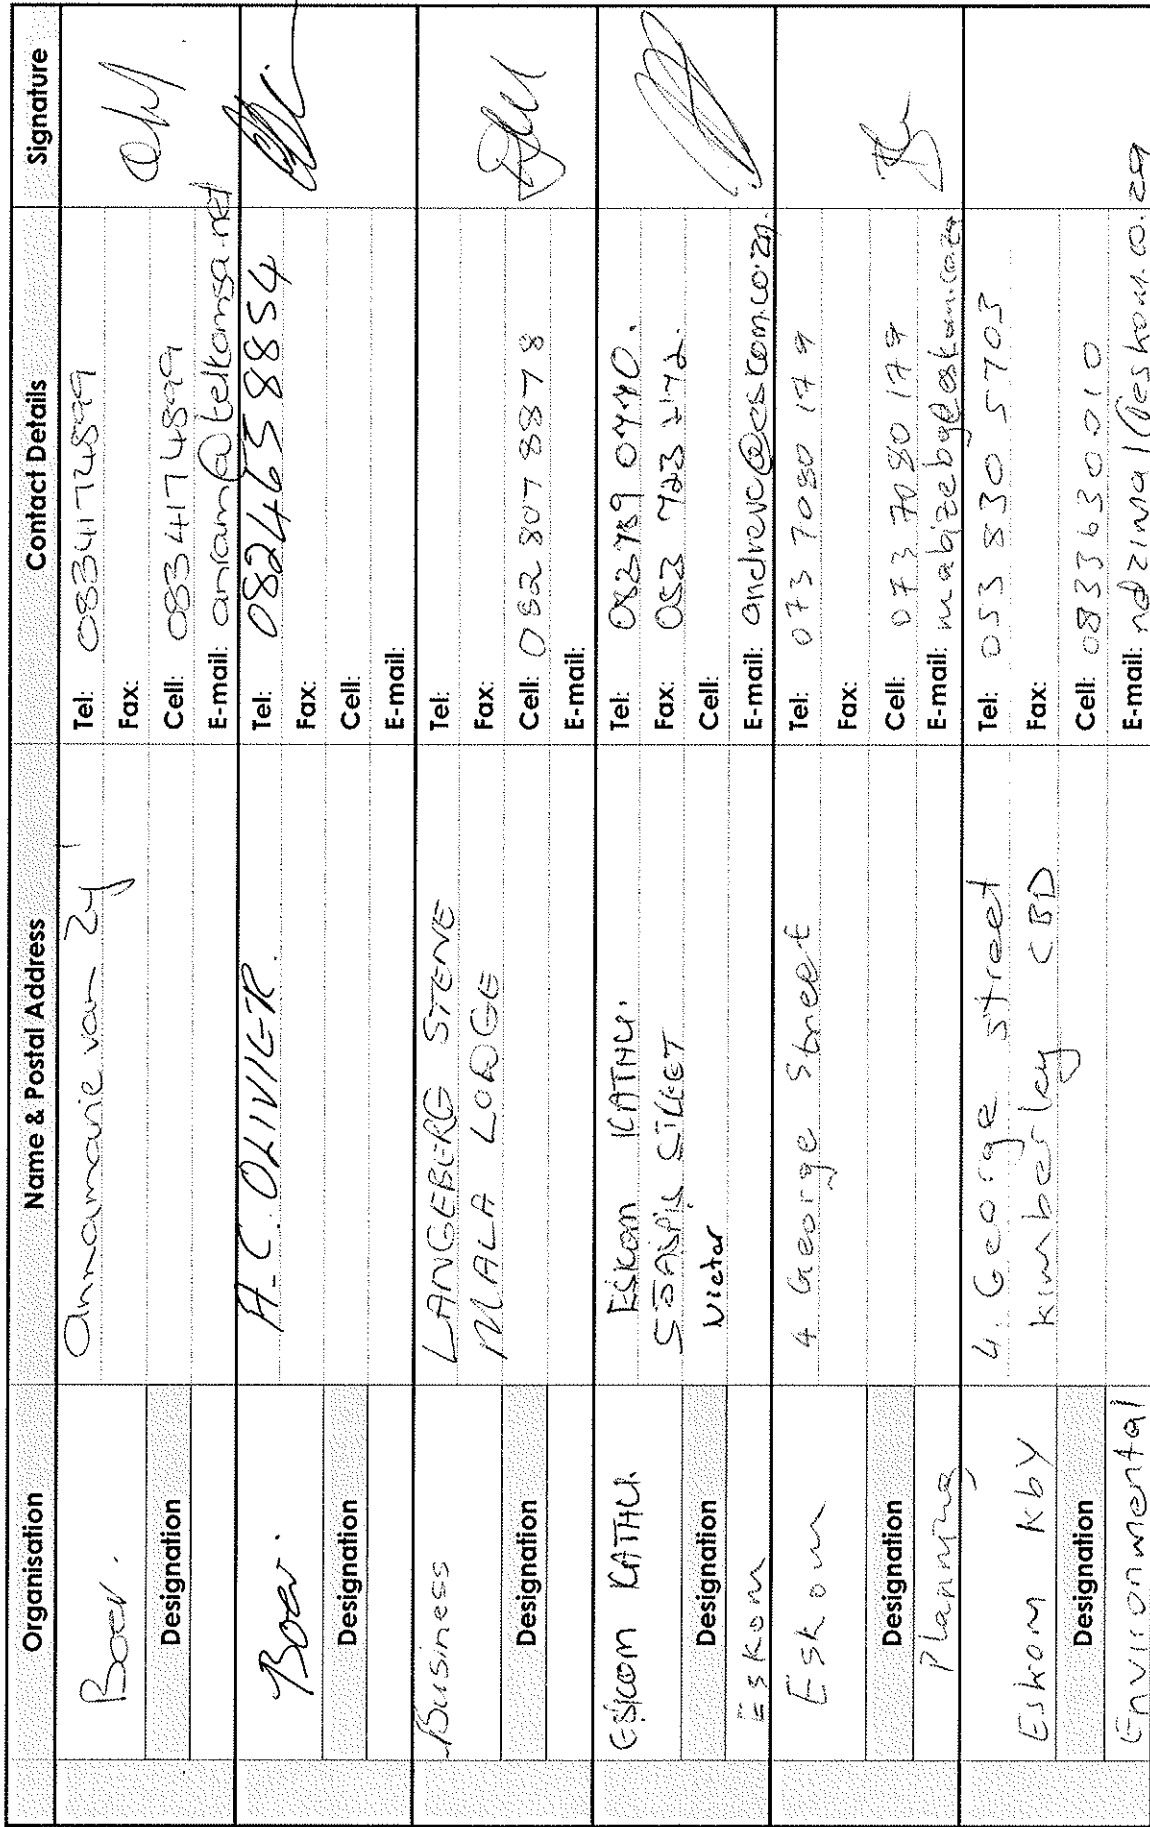 Organisation
Name & Postal Address
Contact Details
Signature
Boer.
Designation
Annamarie van Zyl
Tel: 0834174899
Fax:
Cell: 0834174899
E-mail: anram@telkomsa.net
Boer.
Designation
A.C. OLIVIER.
Tel: 0824658854
Fax:
Cell:
E-mail:
Business
Designation
LANGEBERG STENE
NLALA LODGE
Tel:
Fax:
Cell: 082 807 8878
E-mail:
ESKOM KATHU.
Designation
Eskom
ESKOM KATHU.
Victor
Tel:
Fax: 053 723
Cell:
E-mail: andrevc@eskom.co.za.
Eskom
Designation
Planning
4 George Street
Tel: 073 7080 179
Fax:
Cell: 073 7080 179
E-mail: mabizebg@eskom.co.za
Eskom Kby
Designation
Environmental
4. George street
Kimberley CBD
Tel: 053 830 5703
Fax:
Cell: 0833630010
E-mail: ndzimal@eskom.co.za